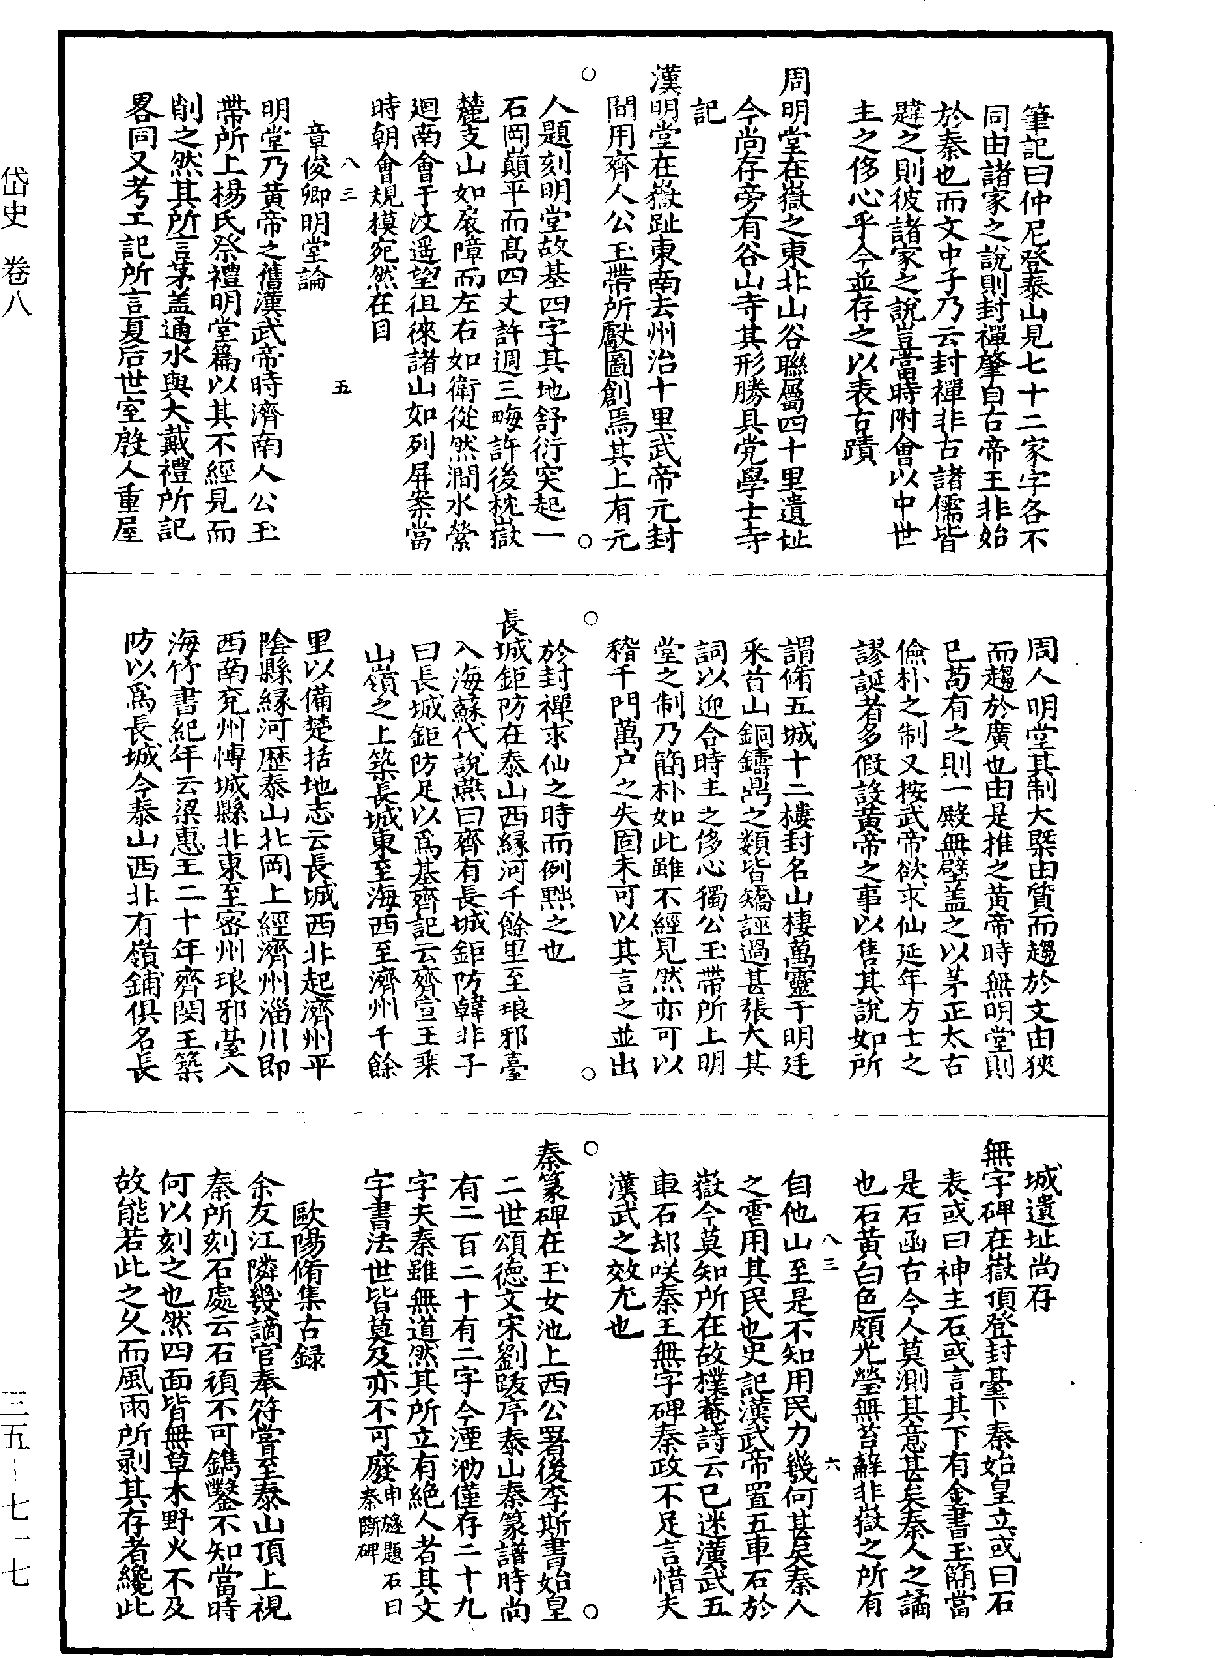 筆記曰仲尼登泰山見七十二家字各不
同由諸家之說則封禪肇自古帝王非始
於秦也而文中子乃云封禪非古諸儒皆
韙之則彼諸家之說豈當時附會以中世
主之侈心乎今並存之以表古蹟
周明堂在嶽之東北山谷聯屬四十里遺址
今尚存旁有谷山寺其形勝具党學士寺
記
漢明堂在嶽趾東南去州治十里武帝元封
間用齊人公玉帶所獻圖創焉其上有元
人題刻明堂故基四字其地舒衍突起一
石岡巔平而高四丈許週三畮許後枕嶽
麓支山如扆障而左右如衛從然澗水縈
迴南會于汶遥望徂徠諸山如列屏案當
時朝會規模宛然在目
八三 五
章俊卿明堂論
明堂乃黃帝之舊漢武帝時濟南人公玉
帶所上楊氏祭禮明堂篇以其不經見而
削之然其所言茅盖通水與大戴禮所記
畧同又考工記所言夏后世室殷人重屋
周人明堂其制大槩由質而趨於文由狹
而趨於廣也由是推之黃帝時無明堂則
已苟有之則一殿無壁盖之以茅正太古
儉朴之制又按武帝欲求仙延年方士之
謬誕者多假設黃帝之事以售其說如所
謂脩五城十二樓封名山棲萬靈于明廷
釆首山銅鑄鼎之類皆矯誣過甚張大其
詞以迎合時主之侈心獨公玉帶所上明
堂之制乃簡朴如此雖不經見然亦可以
稽千門萬户之失固未可以其言之並出
於封禪求仙之時而例黜之也
長城鉅防在泰山西緣河千餘里至琅邪臺
入海蘇代說燕曰齊有長城鉅防韓非子
曰長城鉅防足以爲基齊記云齊宣王乘
山嶺之上築長城東至海西至濟州千餘
里以備楚括地志云長城西北起濟州平
陰縣緣河歷泰山北岡上經濟州淄川即
西南兖州博城縣北東至密州琅邪臺入
海竹書紀年云梁惠王二十年齊閔王築
防以爲長城今泰山西北有嶺鋪俱名長
城遺址尚存
無字碑在嶽頂登封臺下秦始皇立或曰石
表或曰神主石或言其下有金書玉簡當
是石函古今人莫測其意甚矣秦人之譎
也石黃白色頗光瑩無苔蘚非嶽之所有
八三 六
自他山至是不知用民力幾何甚矣秦人
之雪用其民也史記漢武帝置五車石於
嶽今莫知所在故樸菴詩云已迷漢武五
車石却咲秦王無字碑秦政不足言惜夫
漢武之效尤也
秦篆碑在玉女池上西公署後李斯書始皇
二世頌德文宋劉跂序泰山秦篆譜時尚
有二百二十有二字今湮泐僅存二十九
字夫秦雖無道然其所立有絕人者其文
字書法世皆莫及亦不可廢申䃶題石曰秦斷碑
歐陽脩集古録
余友江隣幾謫官奉符嘗至泰山頂上視
秦所刻石處云石頑不可鐫鑿不知當時
何以刻之也然四面皆無草木野火不及
故能若此之久而風雨所剥其存者纔此
岱史 卷八
三五—七一七